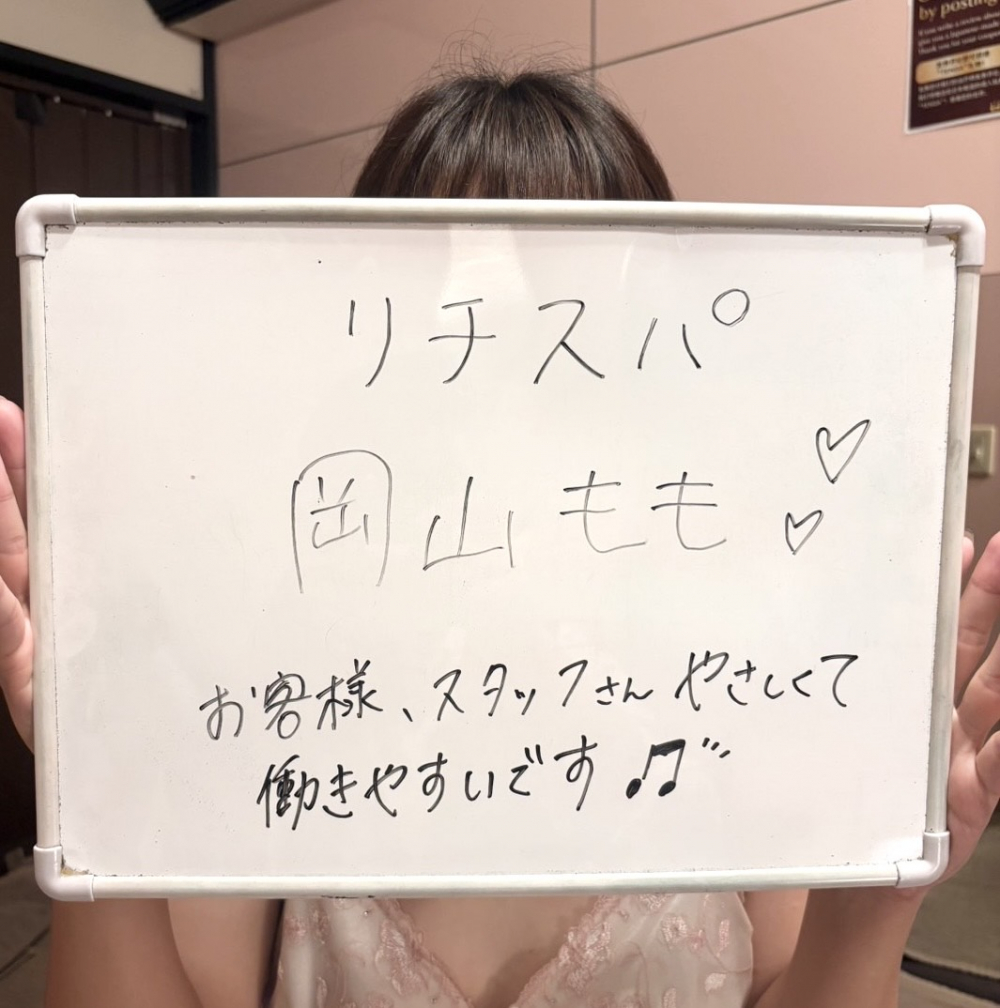 by posting
リチスパ
岡山もも♡♡
お客様、スタッフさん やさしくて
働きやすいです♫